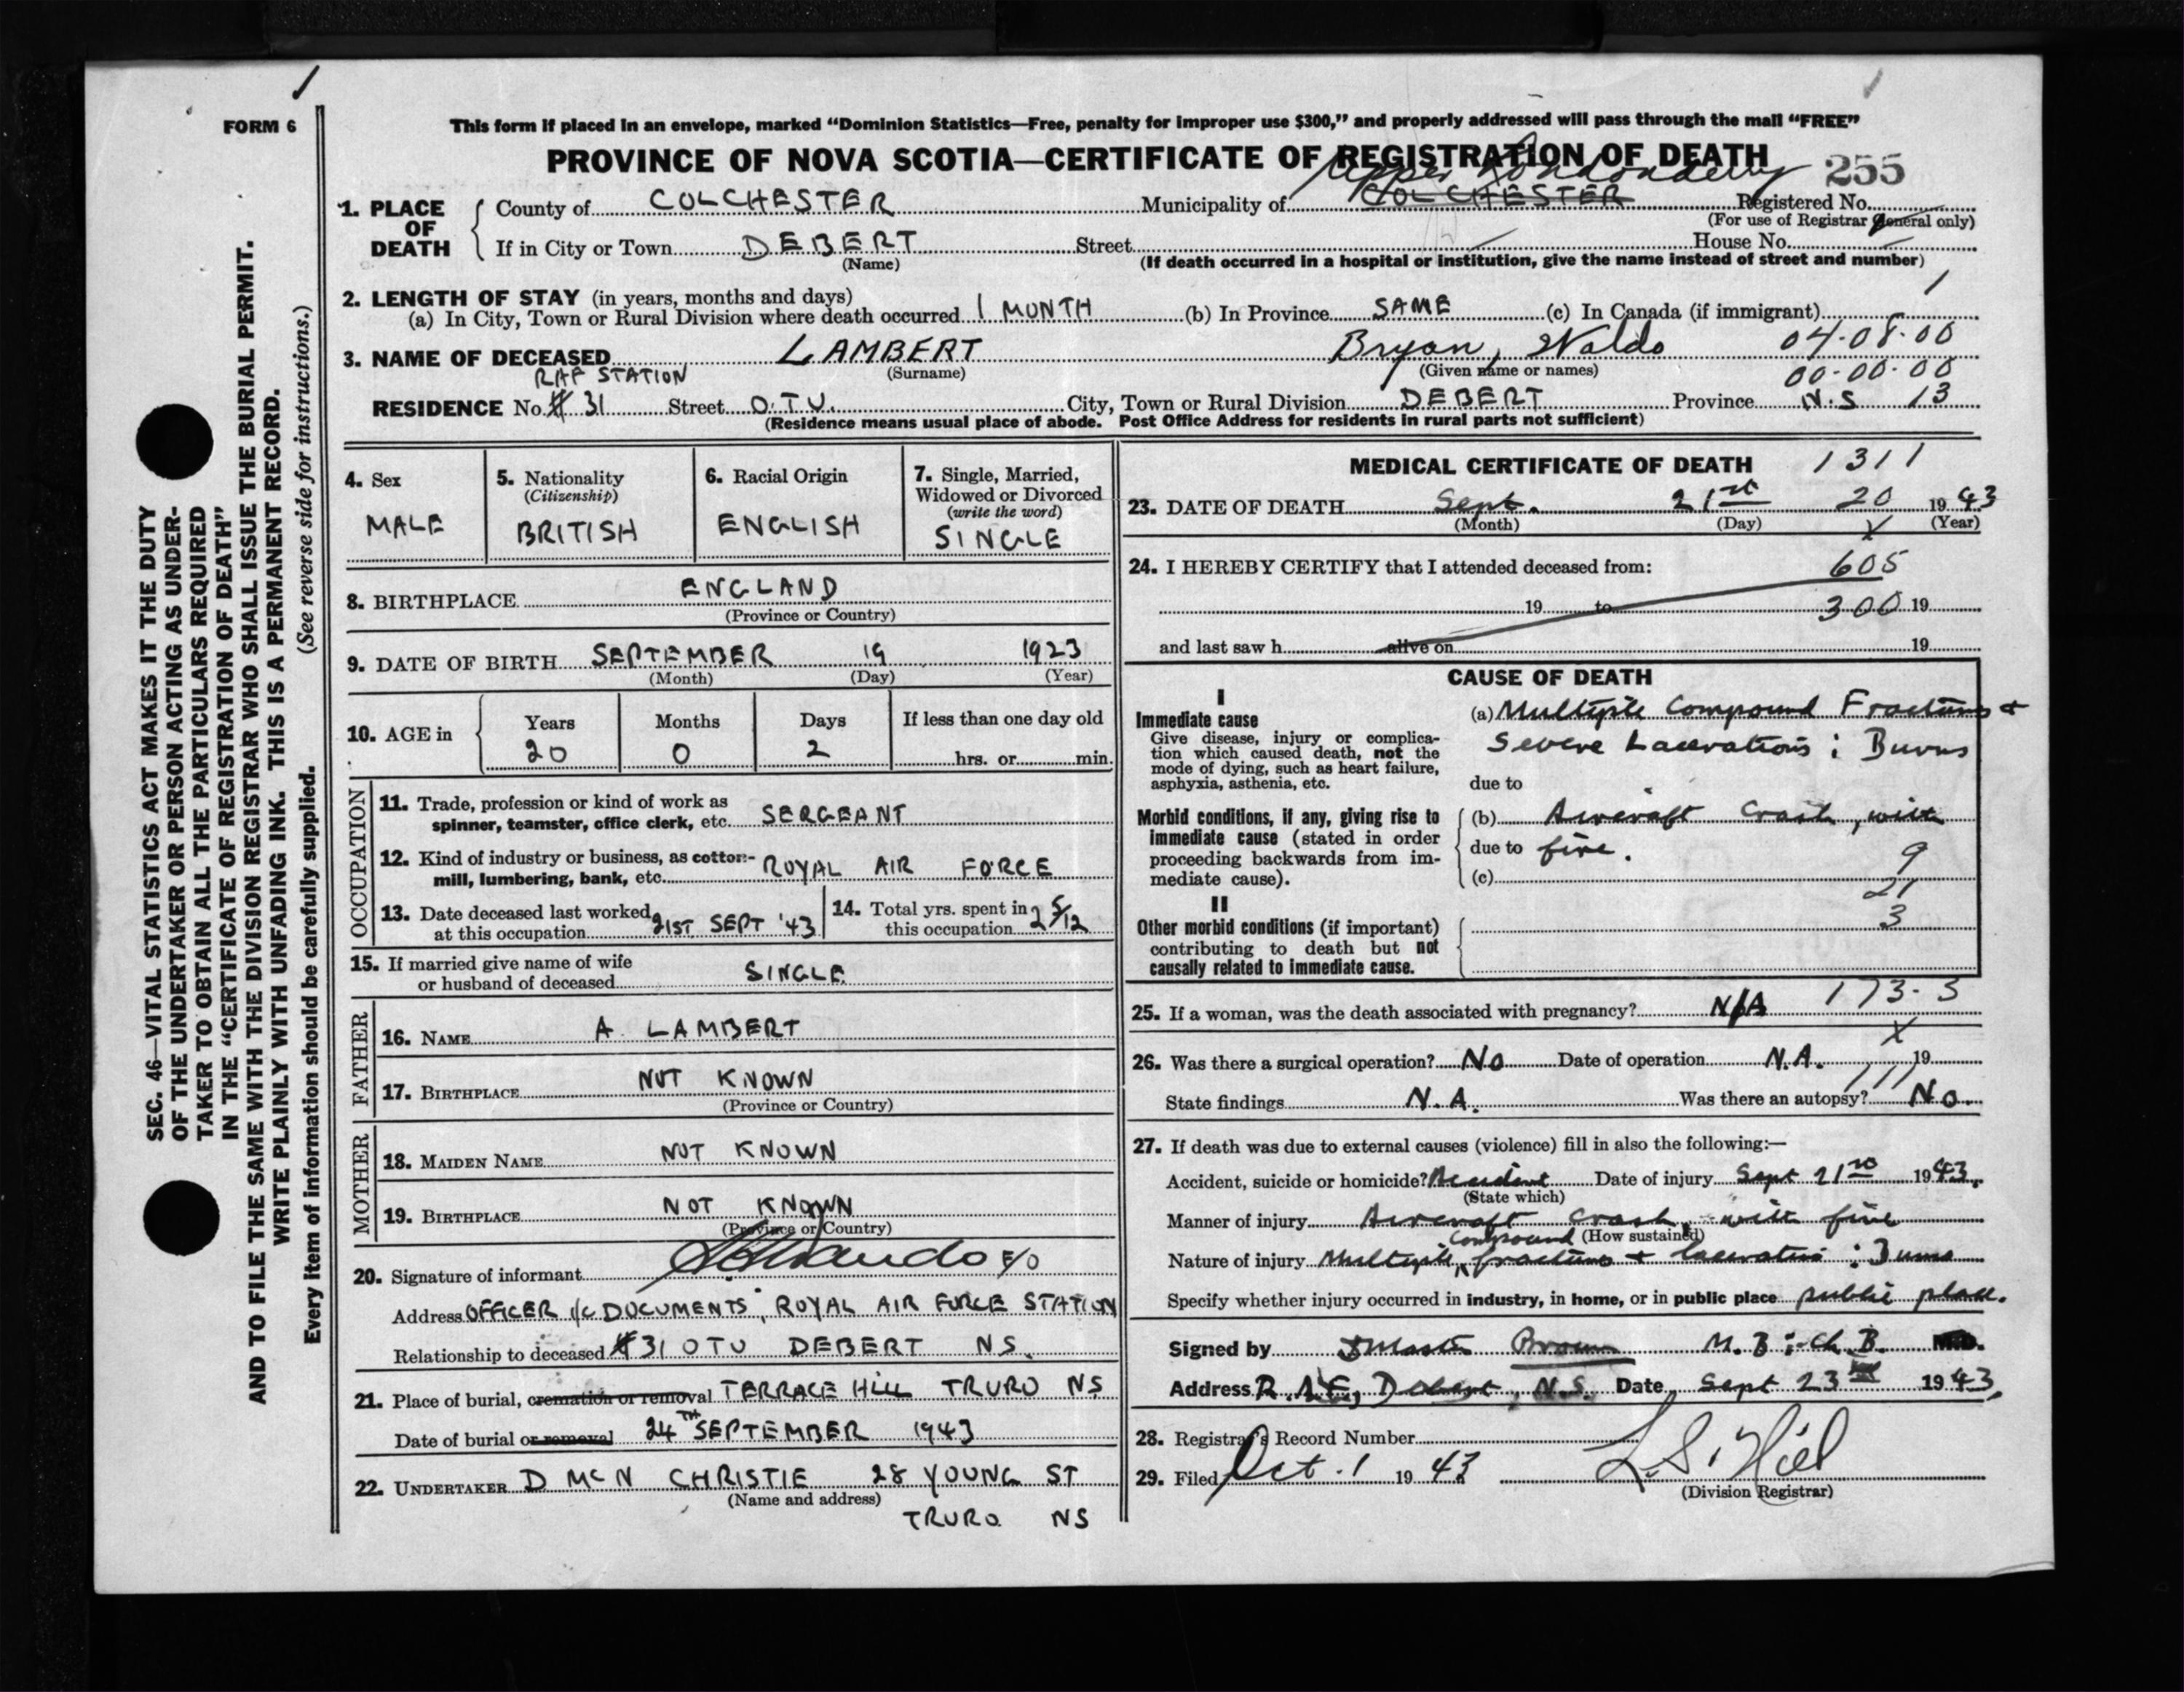 FORM 6
This form if placed in an envelope, marked “Dominion Statistics—Free, penalty for improper use $300,” and properly addressed will pass through the mail “FREE”
PROVINCE OF NOVA SCOTIA—CERTIFICATE OF REGISTRATION OF DEATH
255
Upper Londonderry
1. PLACE OF DEATH
County of COLCHESTER Municipality of COLCHESTER Registered No.
(For use of Registrar General only)
If in City or Town DEBERT Street House No.
(Name) (If death occurred in a hospital or institution, give the name instead of street and number)
2. LENGTH OF STAY (in years, months and days)
(a) In City, Town or Rural Division where death occurred 1 MONTH (b) In Province SAME (c) In Canada (if immigrant)
3. NAME OF DECEASED LAMBERT Bryan, Waldo 04-08-00
(Surname) (Given name or names) 00-00-00
RAF STATION
RESIDENCE No. # 31 Street O.T.U. City, Town or Rural Division DEBERT Province N.S 13
(Residence means usual place of abode. Post Office Address for residents in rural parts not sufficient)
4. Sex
MALE
5. Nationality
(Citizenship)
BRITISH
6. Racial Origin
ENGLISH
7. Single, Married,
Widowed or Divorced
(write the word)
SINGLE
8. BIRTHPLACE ENGLAND
(Province or Country)
9. DATE OF BIRTH SEPTEMBER 19 1923
(Month) (Day) (Year)
10. AGE in
Years Months Days If less than one day old
20 0 2 hrs. or min.
OCCUPATION
11. Trade, profession or kind of work as
spinner, teamster, office clerk, etc. SERGEANT
12. Kind of industry or business, as cotton-
mill, lumbering, bank, etc. ROYAL AIR FORCE
13. Date deceased last worked
at this occupation 21ST SEPT '43
14. Total yrs. spent in
this occupation 2 5/12
15. If married give name of wife
or husband of deceased SINGLE
FATHER
16. NAME A. LAMBERT
17. BIRTHPLACE NOT KNOWN
(Province or Country)
MOTHER
18. MAIDEN NAME NOT KNOWN
19. BIRTHPLACE NOT KNOWN
(Province or Country)
20. Signature of informant F/O
Address OFFICER i/c DOCUMENTS, ROYAL AIR FORCE STATION
Relationship to deceased # 31 OTU DEBERT NS.
21. Place of burial, cremation or removal TERRACE HILL TRURO NS
Date of burial or removal 24TH SEPTEMBER 1943
22. UNDERTAKER D McN CHRISTIE 28 YOUNG ST
(Name and address)
TRURO NS
MEDICAL CERTIFICATE OF DEATH 1311
23. DATE OF DEATH Sept. 21st 20 1943
(Month) (Day) X (Year)
24. I HEREBY CERTIFY that I attended deceased from: 605
19 to 300 19
and last saw h alive on 19
CAUSE OF DEATH
I
Immediate cause
Give disease, injury or complica-
tion which caused death, not the
mode of dying, such as heart failure,
asphyxia, asthenia, etc.
(a) Multiple Compound Fractures +
Severe Lacerations : Burns
due to
Morbid conditions, if any, giving rise to
immediate cause (stated in order
proceeding backwards from im-
mediate cause).
(b) Aircraft Crash, with
due to fire.
(c)
9
21
3
II
Other morbid conditions (if important)
contributing to death but not
causally related to immediate cause.
173-3
25. If a woman, was the death associated with pregnancy? N/A
X
26. Was there a surgical operation? No Date of operation N.A. 19
State findings N.A. Was there an autopsy? No.
27. If death was due to external causes (violence) fill in also the following:—
Accident, suicide or homicide? Accident Date of injury Sept 21st 1943.
(State which)
Manner of injury Aircraft crash, with fire
(How sustained)
Nature of injury Multiple compound fractures + lacerations : Burns
Specify whether injury occurred in industry, in home, or in public place public place.
Signed by Brown M.B : Ch.B. M.D.
Address R.A.F., Debert, N.S. Date Sept 23rd 1943.
28. Registrar's Record Number
29. Filed Oct. 1 1943 L.S. Hill
(Division Registrar)
SEC. 46—VITAL STATISTICS ACT MAKES IT THE DUTY
OF THE UNDERTAKER OR PERSON ACTING AS UNDER-
TAKER TO OBTAIN ALL THE PARTICULARS REQUIRED
IN THE “CERTIFICATE OF REGISTRATION OF DEATH”
AND TO FILE THE SAME WITH THE DIVISION REGISTRAR WHO SHALL ISSUE THE BURIAL PERMIT.
WRITE PLAINLY WITH UNFADING INK. THIS IS A PERMANENT RECORD.
Every item of information should be carefully supplied. (See reverse side for instructions.)